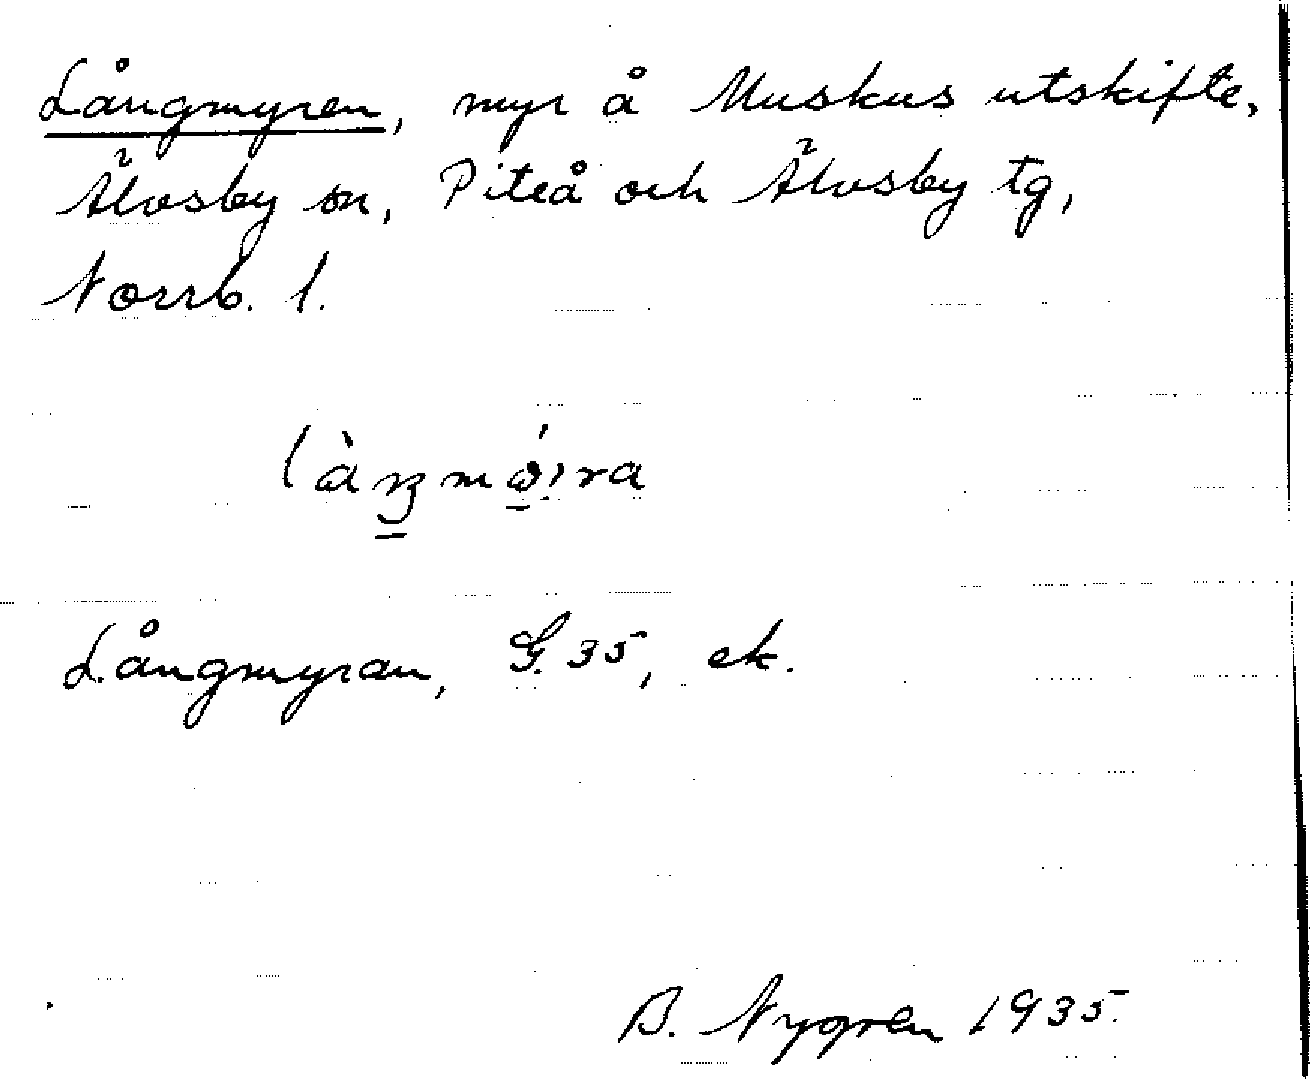 Långmyren, myr å Muskus utskifte,
Älvsby sn, Piteå och Älvsby tg,
Norrb. l.
làŋmǿ̱ira
Långmyran, G. 35, ek.
B. Nygren 1935.